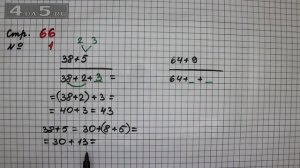 4 ДЛЯ 5.
Стр. 66
№ 1
2 3
38+5
38+2+3 =
=(38+2)+3=
=40+3=43
38+5=30+(8+5)=
=30+13=
64+9
64+_+_